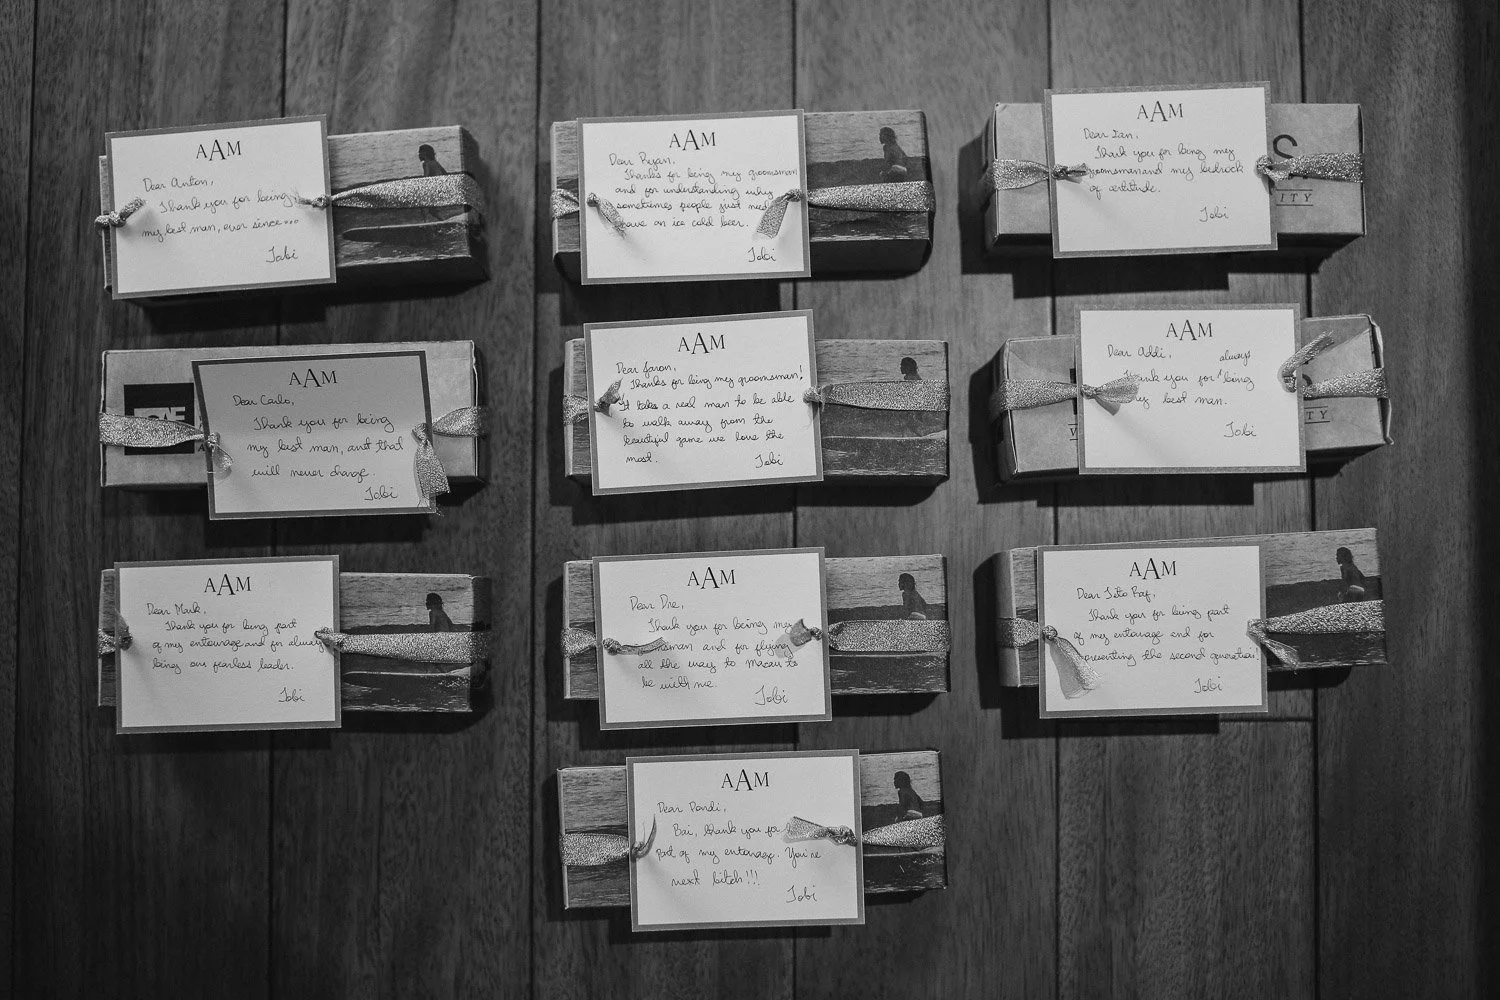 AAM
Dear Anton,
Thank you for being
my best man, ever since...
Tobi
AAM
Dear Ryan,
Thanks for being my groomsman
and for understanding why
sometimes people just need
have an ice cold beer.
Tobi
AAM
Dear Ian,
Thank you for being my
groomsman and my bedrock
of certitude.
Tobi
S
ITY
AAM
Dear Carlo,
Thank you for being
my best man, and that
will never change.
Tobi
AAM
Dear Jaron,
Thanks for being my groomsman!
It takes a real man to be able
to walk away from the
beautiful game we love the
most.
Tobi
AAM
Dear Addi,
always
Thank you for being
my best man.
Tobi
TY
AAM
Dear Mark,
Thank you for being part
of my entourage and for always
being our fearless leader.
Tobi
AAM
Dear Dre,
Thank you for being my
msman and for flying
all the way to Macau to
be with me.
Tobi
AAM
Dear Tito Raf,
Thank you for being part
of my entourage and for
presenting the second generation!
Tobi
AAM
Dear Dondi,
Bai, thank you for
part of my entourage. You're
next bitch!!!
Tobi